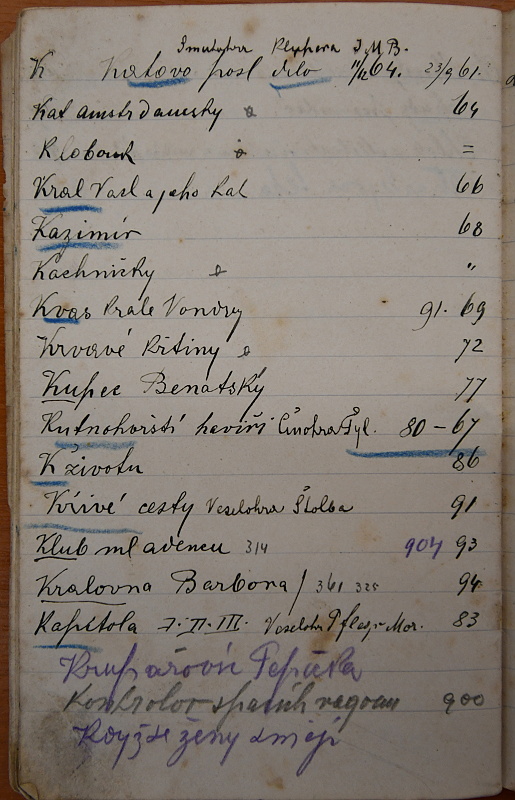 J. M. B.
K Katovo posl dílo 11/11 64. 23/9 61.
Kat amstrdamsky 64
Klobouk =
Kral Vacl a jeho kat 66
Kazimír 68
Kachničky "
Kvas Krale Vondry 91. 69
Krvavé křtiny 72
Kupec Benátský 77
Kutnohorští havíři Činohra Tyl. 80 – 67
K životu 86
Křivé cesty Veselohra Štolba 91
Klub mladenců 314 904 93
Kralovna Barbora / 361 325 94
Kapitola I. II. III. Veselohr Mor. 83
Krupařovic Pepička
Kontrolor spacích vagonu 900
Když se ženy smějí